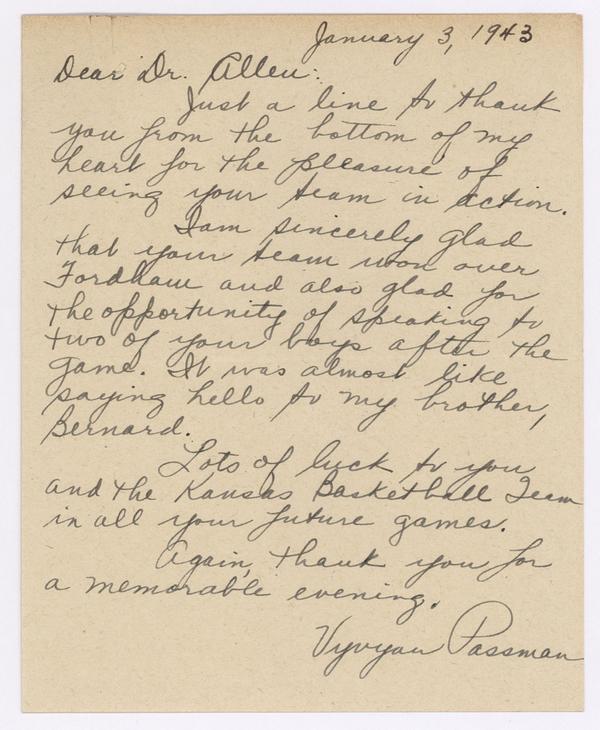 January 3, 1943
Dear Dr. Allen:
Just a line to thank
you from the bottom of my
heart for the pleasure of
seeing your team in action.
I am sincerely glad
that your team won over
Fordham and also glad for
the opportunity of speaking to
two of your boys after the
game. It was almost like
saying hello to my brother,
Bernard.
Lots of luck to you
and the Kansas Basketball Team
in all your future games.
Again, thank you for
a memorable evening.
Vyvyan Passman